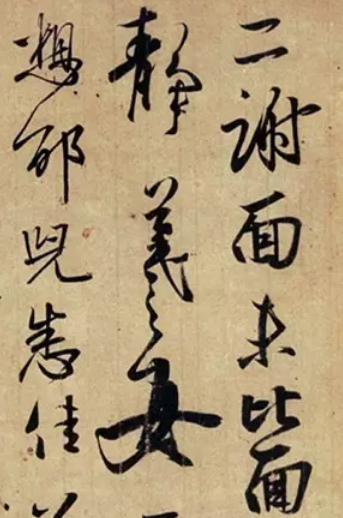 二謝面未比面
靜羲之女
想邰兒悉佳